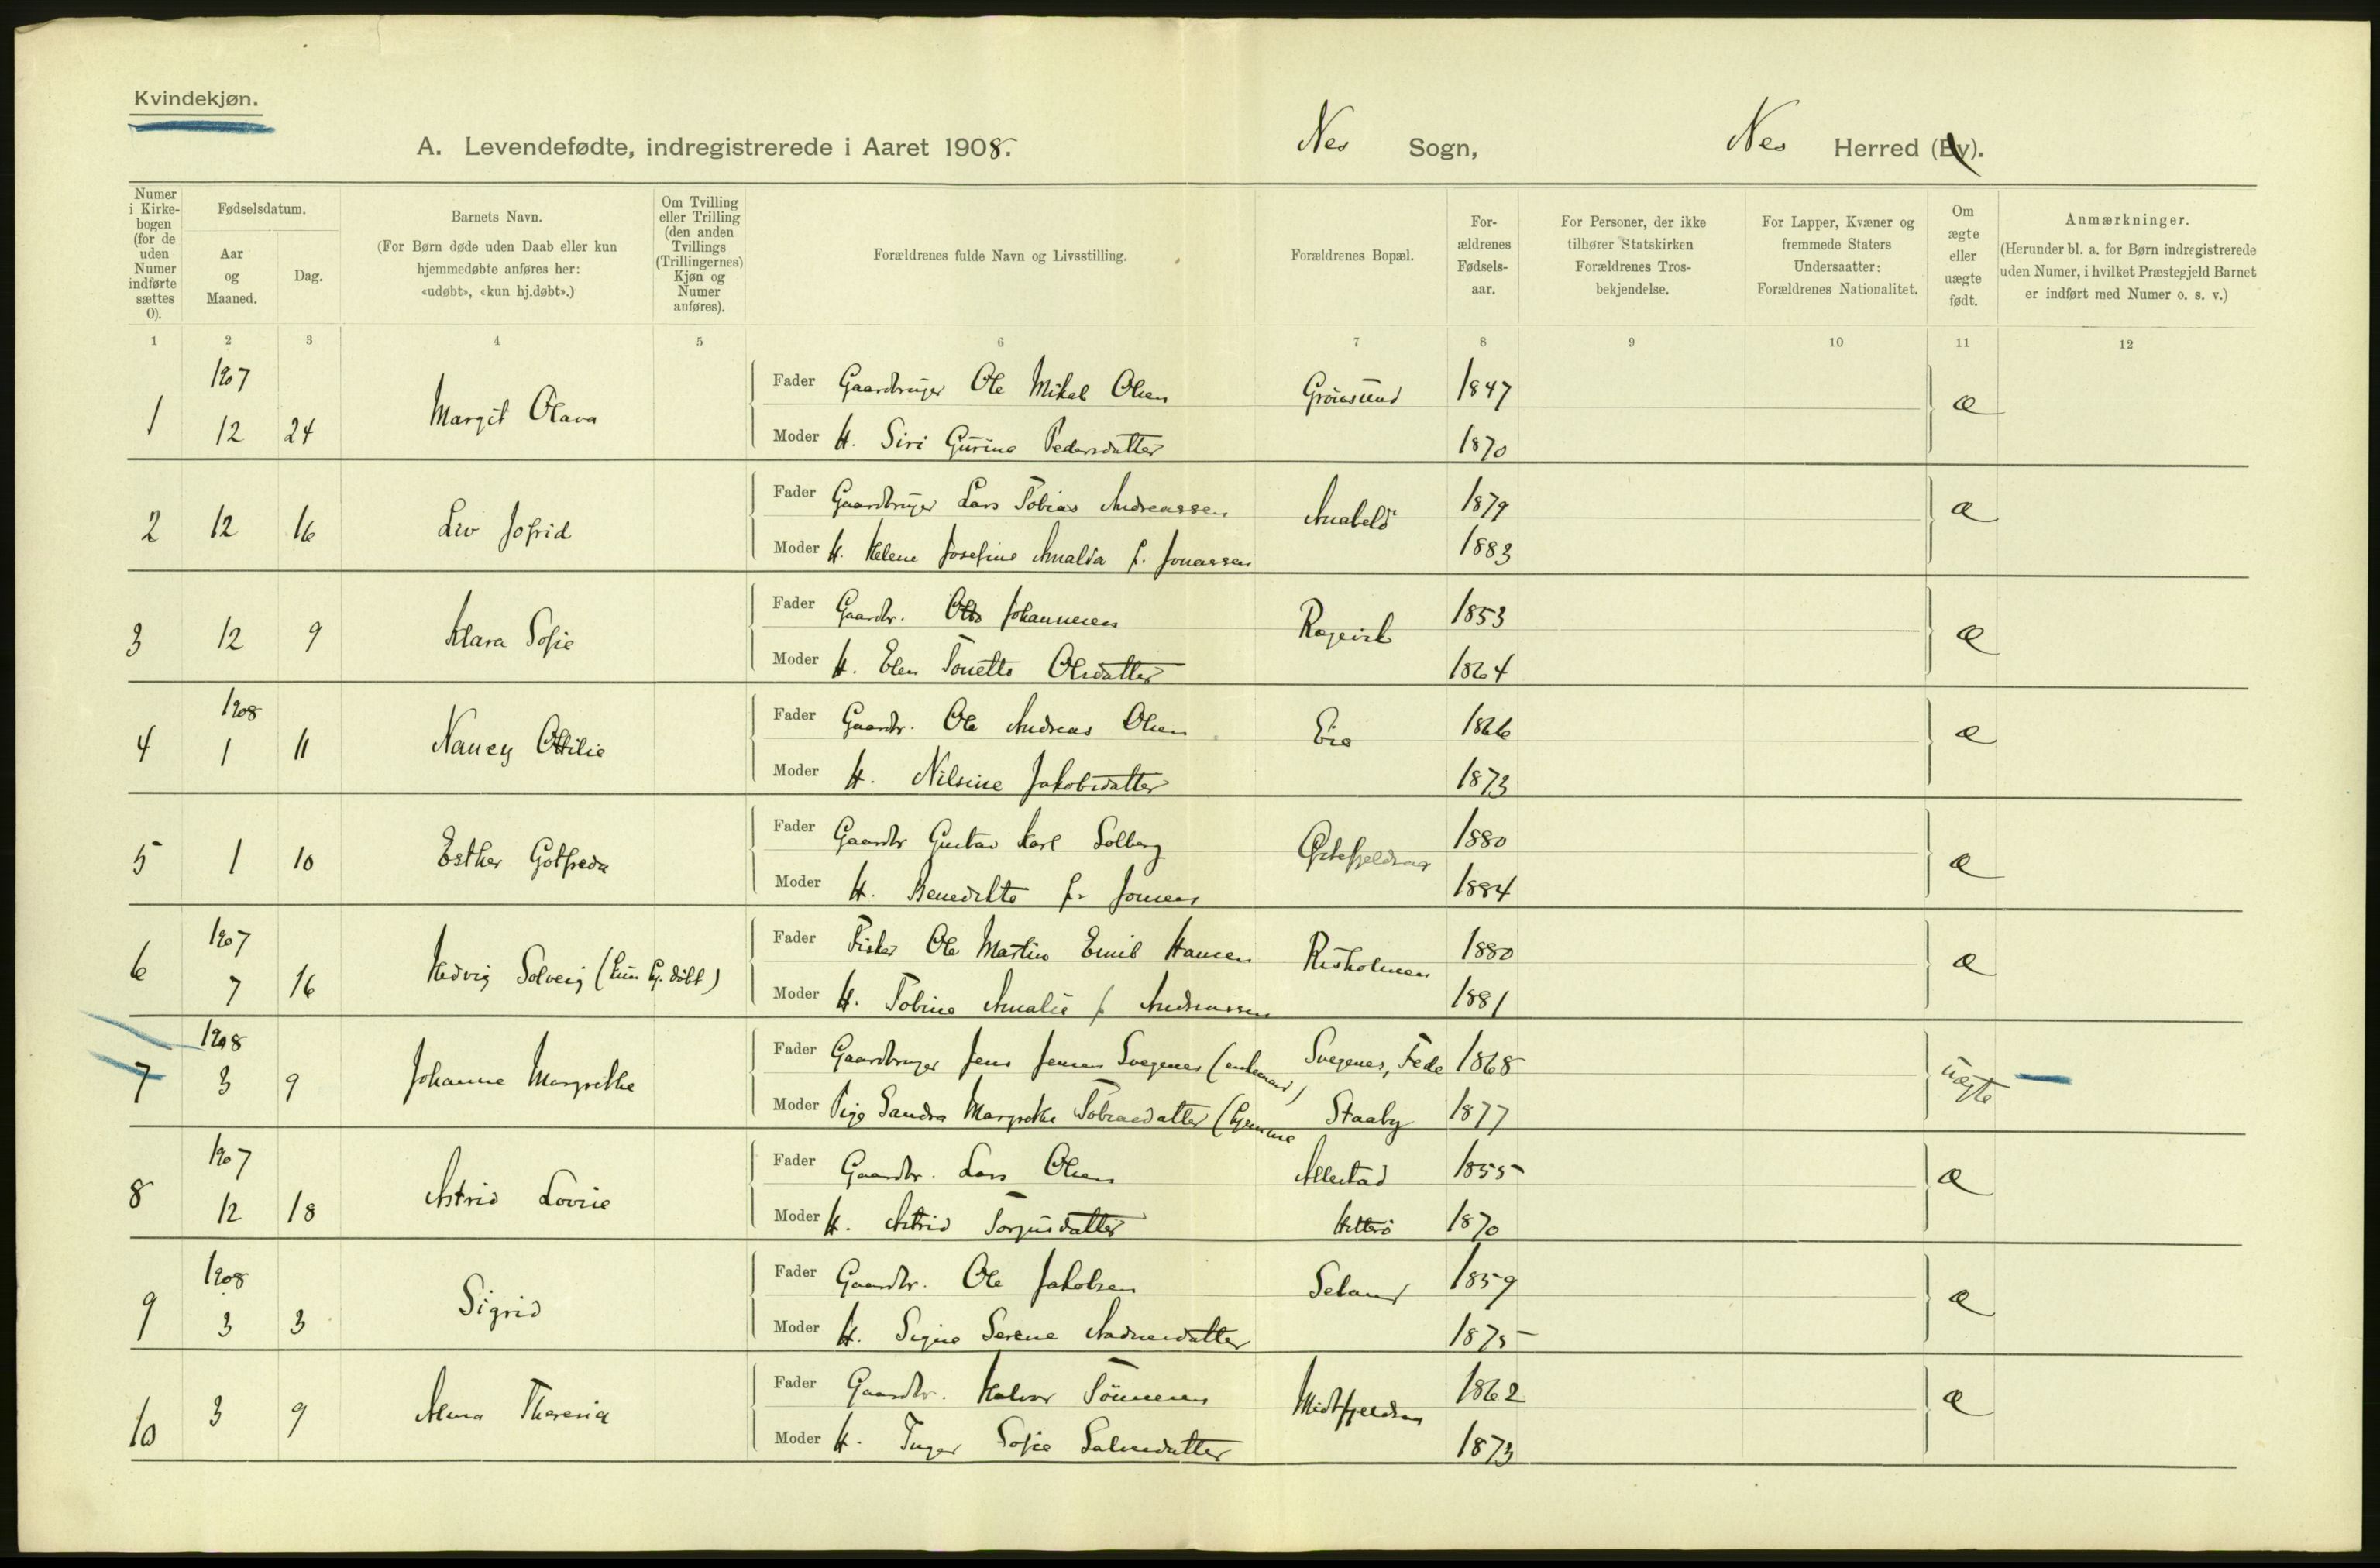 Kvindekjøn.
A. Levendefødte, indregistrerede i Aaret 1908. Nes Sogn, Nes Herred (By).
Numer i Kirkebogen (for de uden Numer indførte sættes 0).
Fødselsdatum.
Aar og Maaned.
Dag.
Barnets Navn.
(For Børn døde uden Daab eller kun hjemmedøbte anføres her: «udøbt», «kun hj.døbt».)
Om Tvilling eller Trilling (den anden Tvillings (Trillingernes) Kjøn og Numer anføres).
Forældrenes fulde Navn og Livsstilling.
Forældrenes Bopæl.
Forældrenes Fødselsaar.
For Personer, der ikke tilhører Statskirken Forældrenes Trosbekjendelse.
For Lapper, Kvæner og fremmede Staters Undersaatter: Forældrenes Nationalitet.
Om ægte eller uægte født.
Anmærkninger.
(Herunder bl. a. for Børn indregistrerede uden Numer, i hvilket Præstegjeld Barnet er indført med Numer o. s. v.)
1 2 3 4 5 6 7 8 9 10 11 12
1907
1 12 24 Margit Olava
Fader Gaardbruger Ole Mikal Olsen Grønsund 1847 æ
Moder H. Siri Gurine Pedersdatter 1870
2 12 16 Liv Jofrid
Fader Gaardbruger Lars Tobias Andreassen Anabelø 1879 æ
Moder H. Helene Josefine Amalda f. Jonassen 1883
3 12 9 Klara Sofie
Fader Gaardbr. Johannesen 1853 æ
Moder H. Elen Tonette Olsdatter 1864
1908
4 1 11 Nancy Ottilie
Fader Gaardbr. Ole Andreas Olsen Eie 1866 æ
Moder H. Nilsine Jakobsdatter 1873
5 1 10 Esther Gotfreda
Fader Gaardbr Gustav Karl Solberg 1880 æ
Moder H. Benedikte f. Jonsen 1884
1907
6 7 16 Hedvig Solveig (kun hj. døbt)
Fader Fisker Ole Martin Emil Hansen Risholmen 1880 æ
Moder H. Tobine Amalie f Andreassen 1881
1908
7 3 9 Johanne Margrethe
Fader Gaardbruger Jens Jensen Svegenes (enkemand) Svegenes, Fede 1868 uægte
Moder Pige Sandra Margrethe Tobiasdatter (hjemme Staaby 1877
1907
8 12 18 Astrid Lovise
Fader Gaardbr. Lars Olsen Allestad 1855 æ
Moder H. Astrid Torgusdatter Hitterø 1870
1908
9 3 3 Sigrid
Fader Gaardbr. Ole Jakobsen Seland 1859 æ
Moder H. Signe Serene Aadnesdatter 1875
10 3 9 Alma Theresia
Fader Gaardbr. Halvor Tönnesen Midtfjeldsaa 1862 æ
Moder H. Inger Sofie Salvesdatter 1873